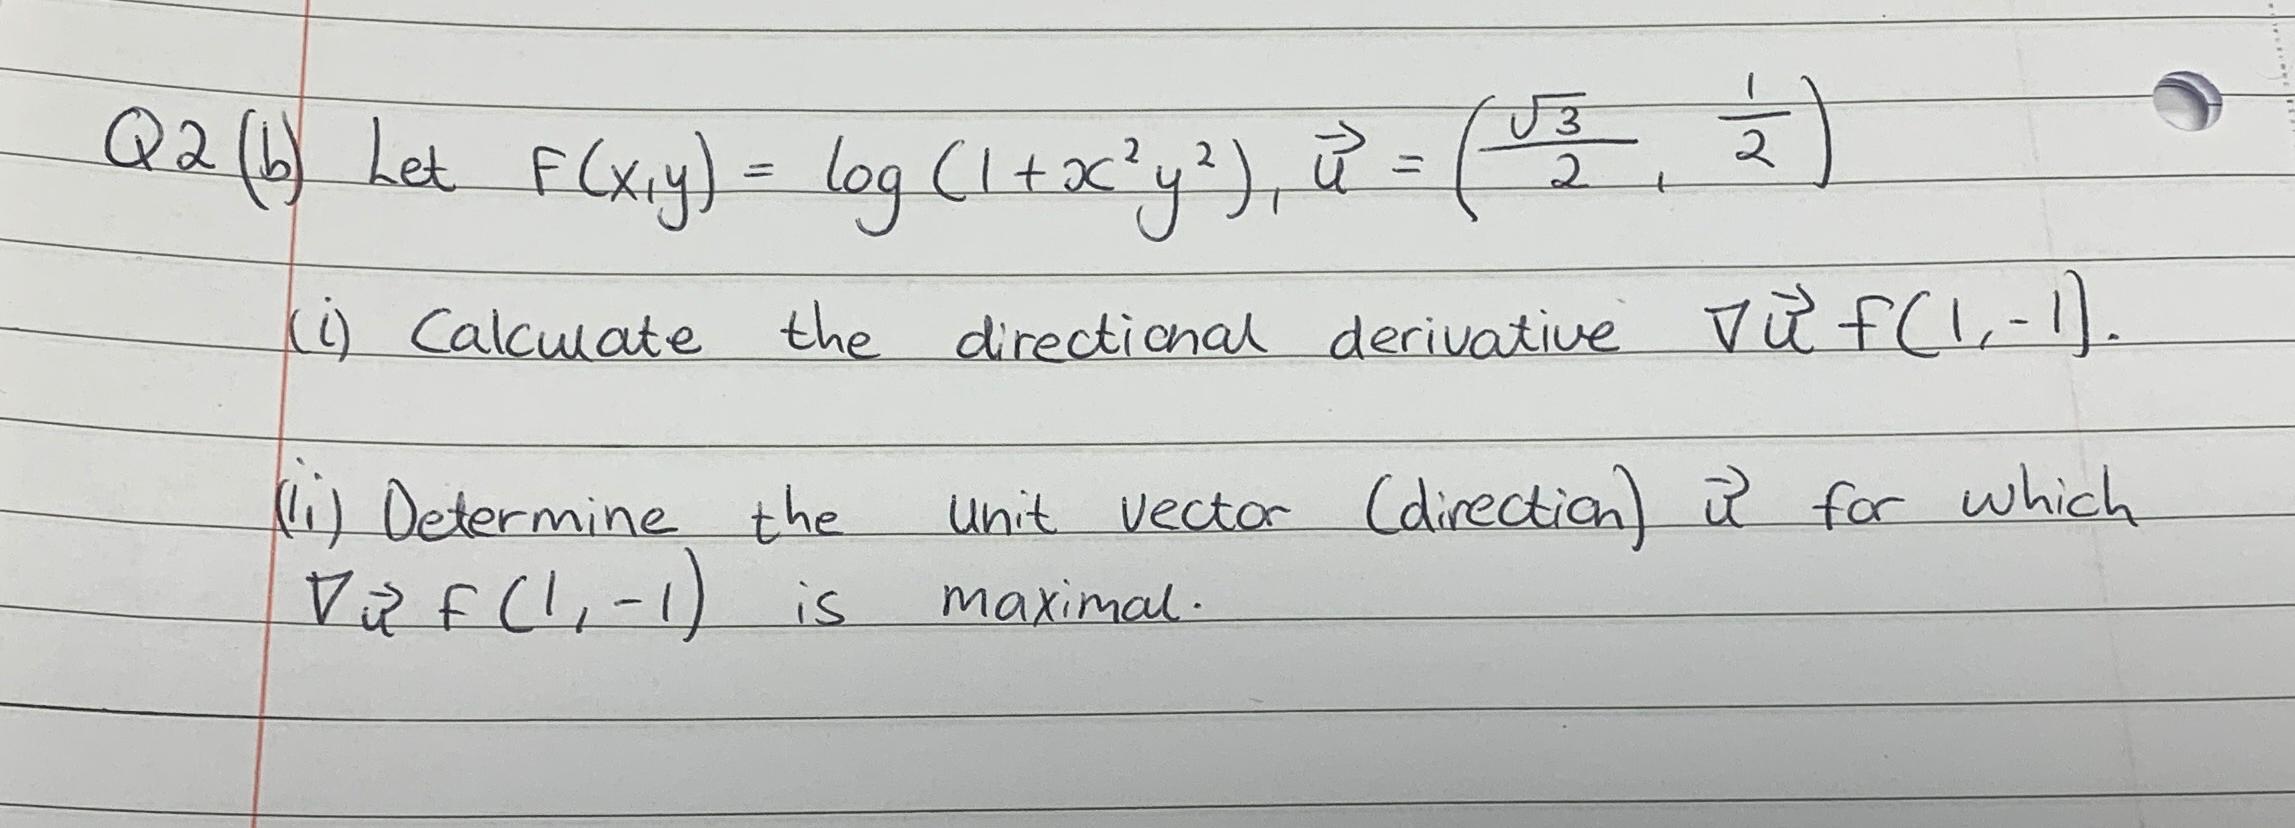 Q2 (b) Let F(x,y) = log (1+x²y²), u⃗ = (√3/2, 1/2)
(i) Calculate the directional derivative ∇u⃗ f(1,-1).
(ii) Determine the unit vector (direction) u⃗ for which
∇u⃗ f(1,-1) is maximal.